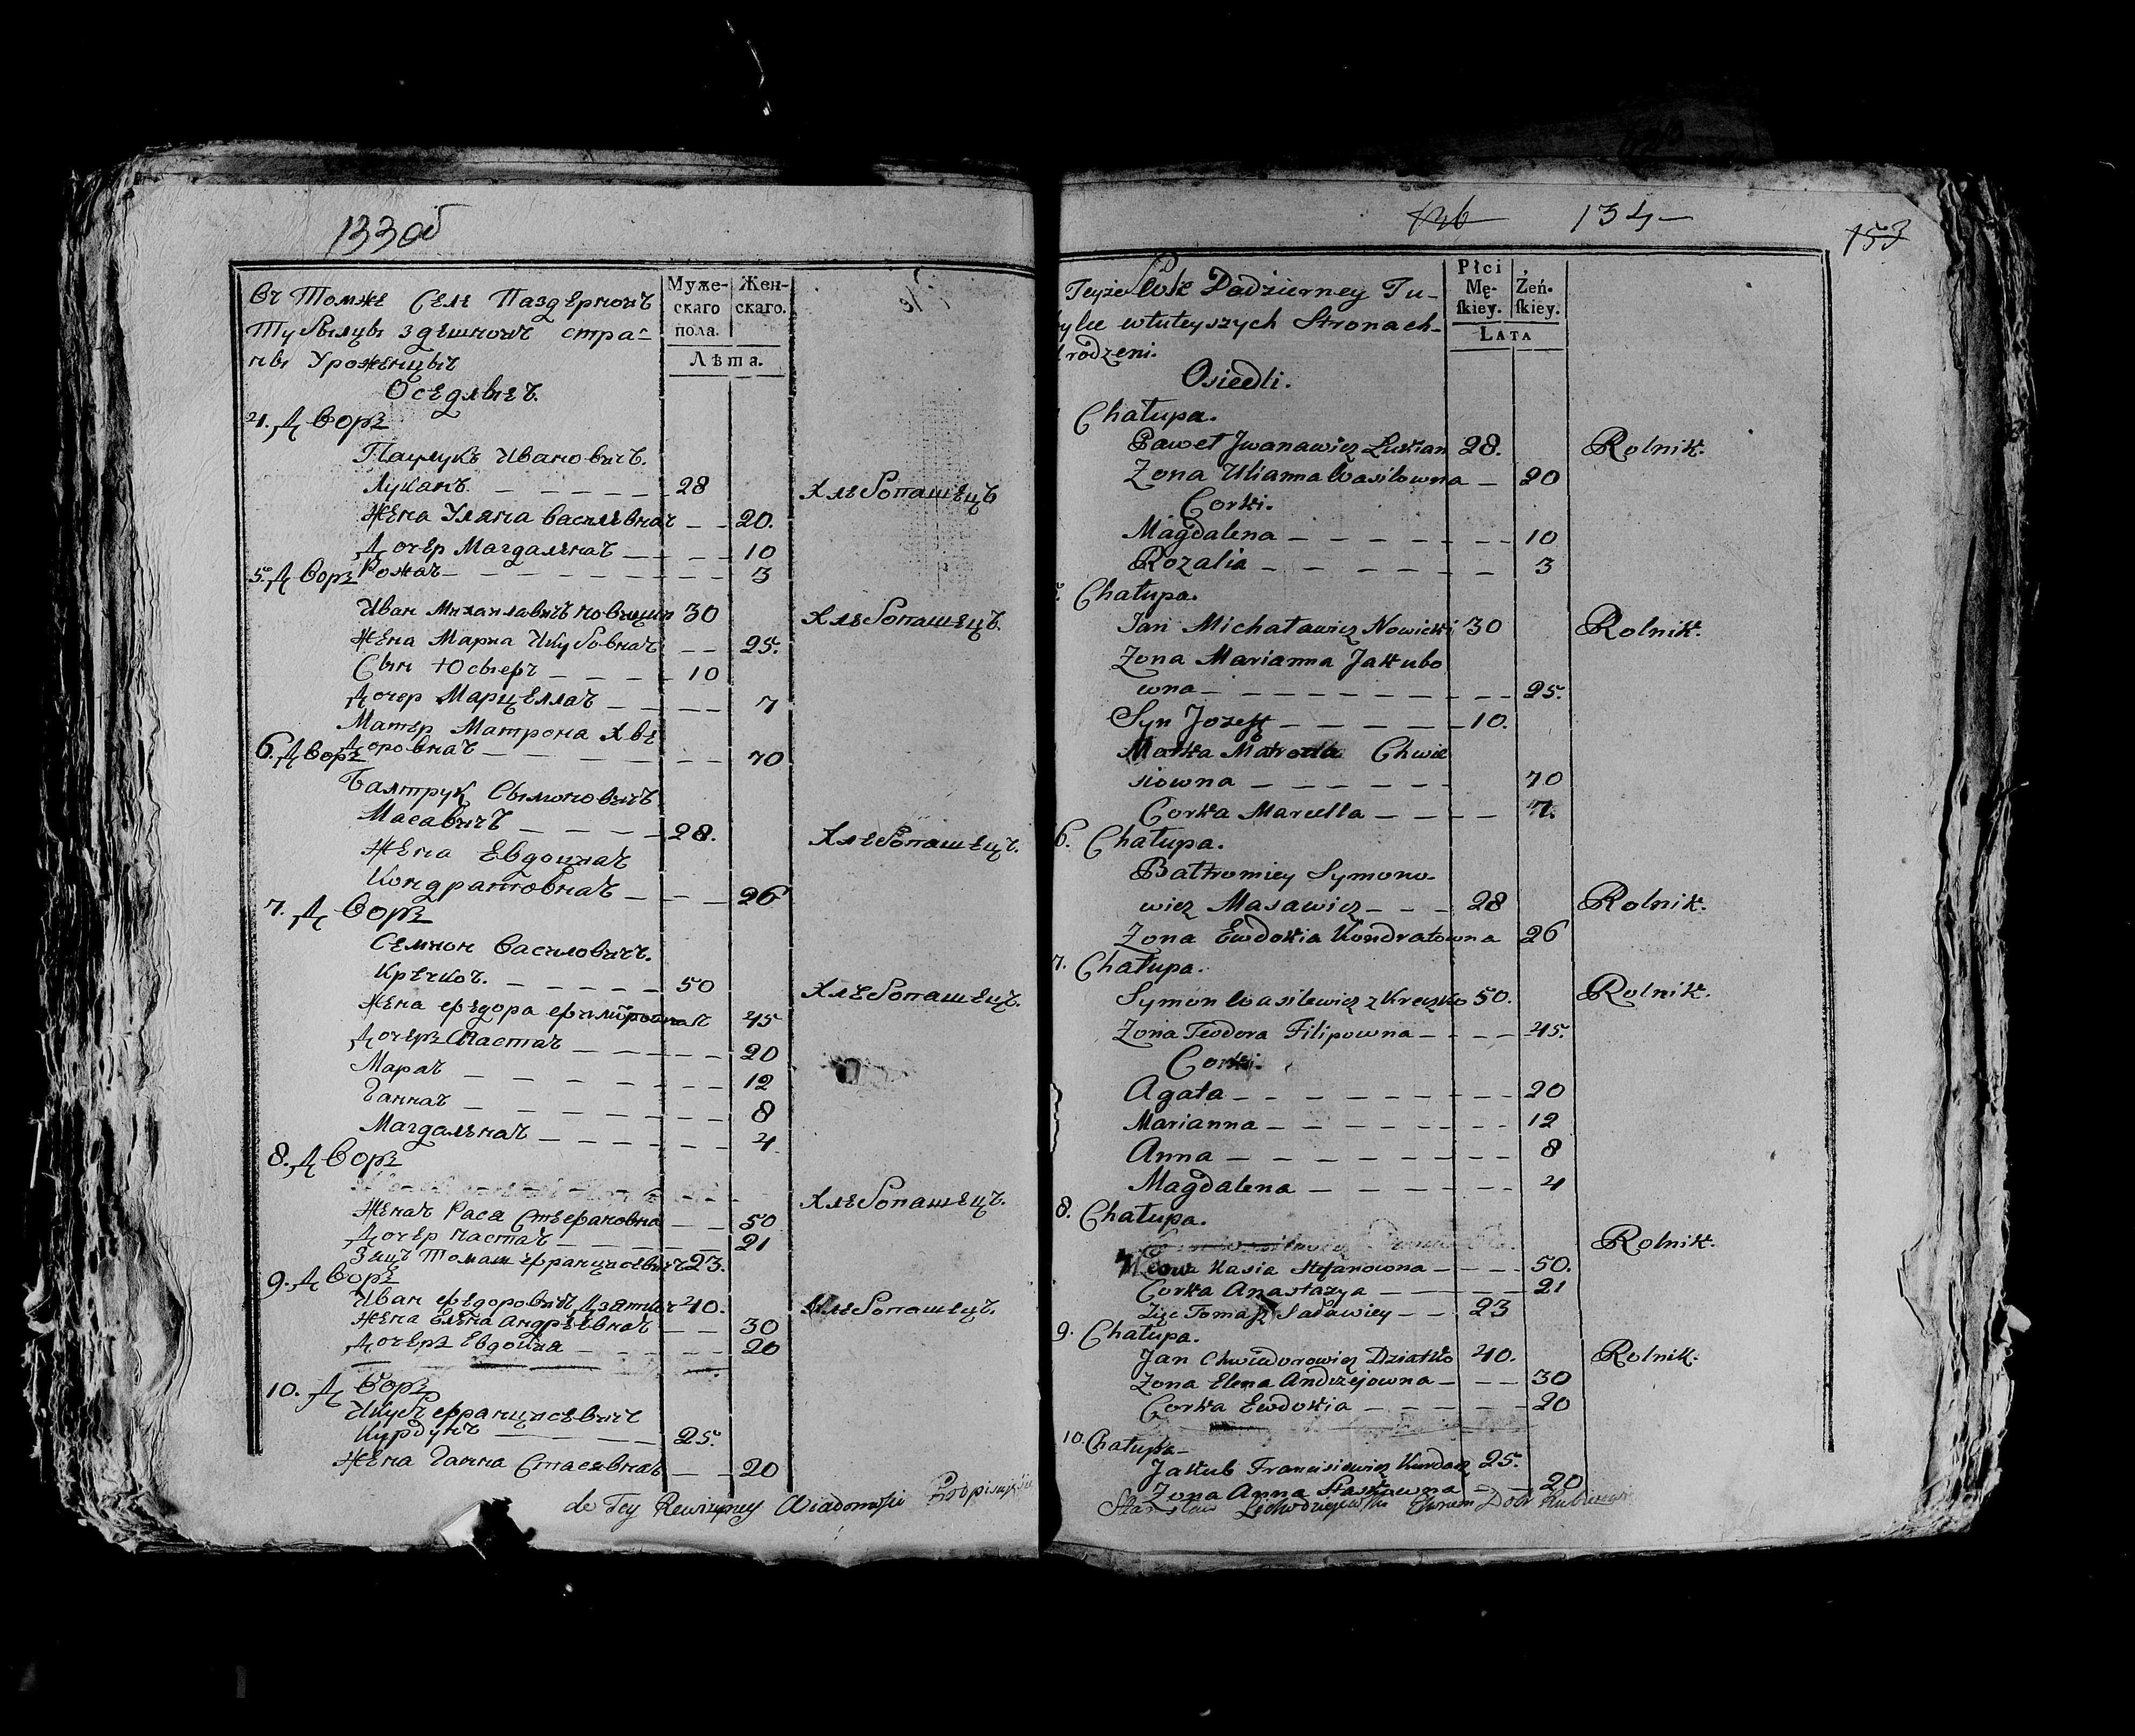 133об
Муже-
скаго
пола.
Жен-
скаго.
Лѣта.
Въ Томже Селе Паздерномъ
здешномъ стра-
ны Уроженцы
Оседлые
4. Дворъ
Паулукъ Ивановичъ.
Луканъ. 28
Хлебопашецъ
Жена Уляна Василевна 20.
Дочер Магдалена 10
5. Дворъ Рожа 3
Иван Михаилавичъ Новицки 30
Хлебопашецъ.
Жена Марна Якубовна 25.
Сын Юсыеф 10
Дочер Марцелла 7
Матер Матрона Хве
6. Дворъ доровна 70
Балтрук Сымоновичъ
Масавичъ 28.
Хлебопашецъ.
Жена Евдокиа
Кондратовна 26
7. Дворъ
Семион Василовичъ.
Кречко. 50
Хлебопашецъ.
Жена Федора 45
Дочеръ Настаъ 20
Мараъ 12
Ганнаъ 8
Магдаленаъ 4
8. Дворъ
Хлебопашецъ.
Жена Кася Стефановна 50
Дочер Настаъ 21
Зяцъ Томаш Францисевичъ 23.
9. Дворъ
Иван Федоровичъ Дзятко 40.
Хлебопашецъ.
Жена Елена Андреевна 30
Дочеръ Евдокия 20
10. Дворъ
Якубъ Францисевичъ
Курдукъ 25.
Жена Ганна Стасевна 20
do Tey Rewizyney Wiadomości Podpisuję się
126 134 153
Płci
Mę-
ſkiey.
Żeń-
ſkiey.
LATA
Teyże Wsi Dadzierney Tu-
bylce wtuteyszych Stronach-
Urodzeni.
Osiedli.
Chałupa.
Paweł Jwanawicz Lukian 28.
Rolnik.
Zona Ulianna Wasilowna 20
Corki.
Magdalena 10
Rozalia 3
5. Chałupa.
Jan Michaławicz Nowicki 30
Rolnik.
Zona Marianna Jakubo
wna 25.
Syn Jozeff 10.
Matka Chwie
siowna 70
Corka Marcella 7.
6. Chałupa.
Bałtromiey Symono-
wicz Masawicz 28
Rolnik.
Zona Ewdokia Kondratowna 26
7. Chałupa.
Symon Wasilewicz Kreczko 50.
Rolnik.
Zona Teodora Filipowna 45.
Corki.
Agata 20
Marianna 12
Anna 8
Magdalena 4
8. Chałupa.
Rolnik.
Kasia Stefanowna 50.
Corka Anastazya 21
Zięć Tomasz 23
9. Chałupa.
Jan Chwiadorowicz Dziatko 40.
Rolnik.
Zona Elena Andrzejowna 30
Corka Ewdokia 20
10. Chałupa
Jakub Franciszewicz 25.
Zona Anna Staskawna 20
Stanisław